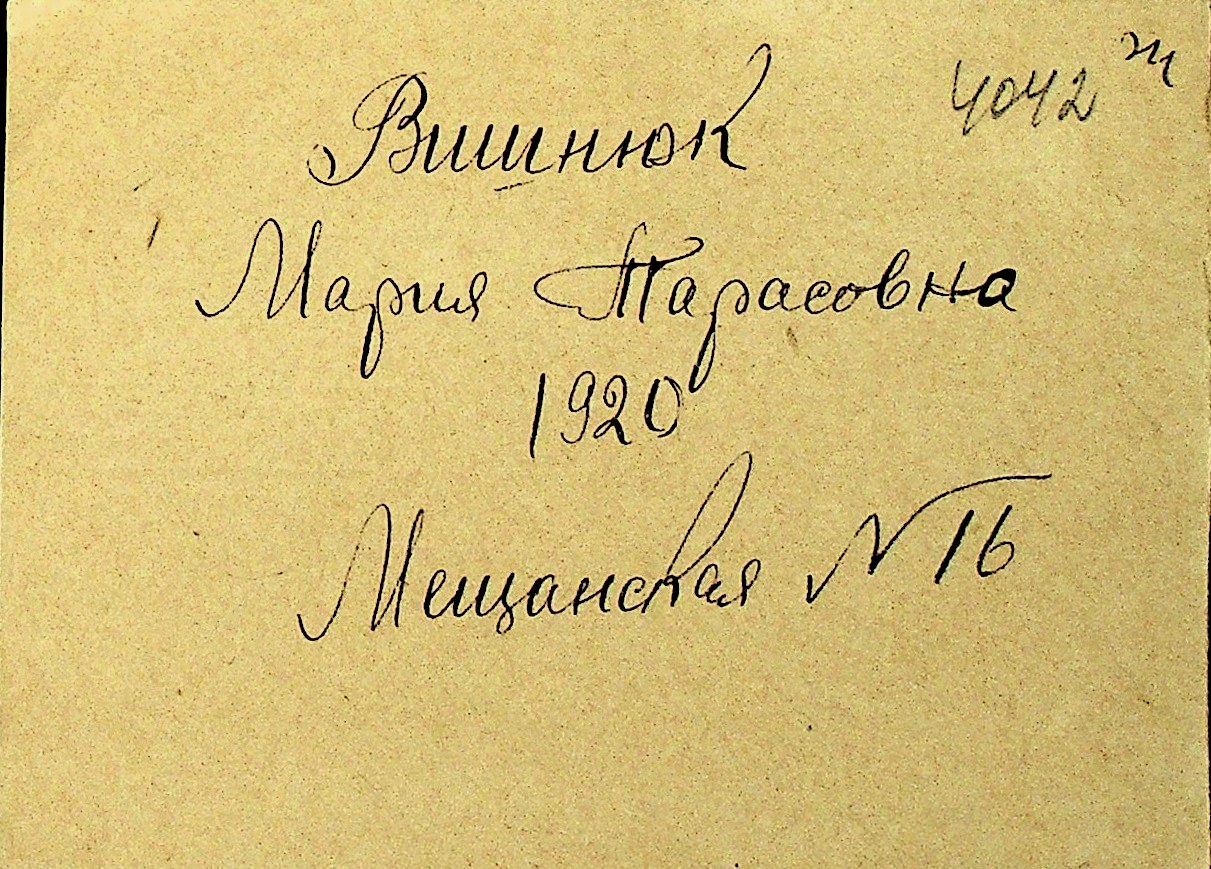 4042 ж
Вишнюк
Мария Тарасовна
1920
Мещанская N 16